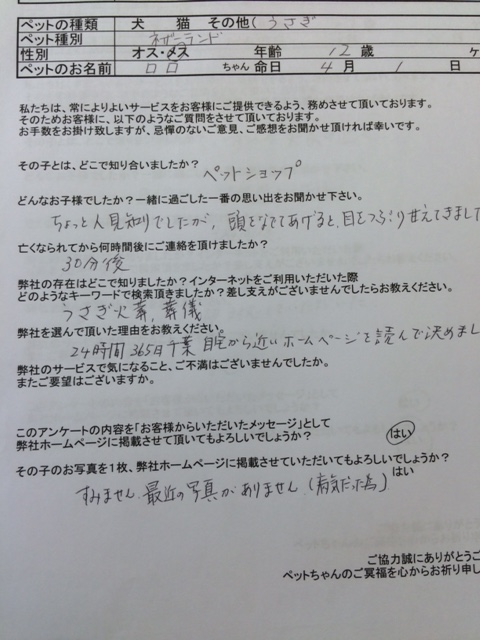 ペットの種類 犬 猫 その他( うさぎ
ペット種別 ネザーランド
性別 オス・メス 年齢 12 歳 ヶ
ペットのお名前 ロロ ちゃん 命日 4 月 1 日
私たちは、常によりよいサービスをお客様にご提供できるよう、務めさせて頂いております。
そのためお客様に、以下のようなご質問をさせて頂いております。
お手数をお掛け致しますが、忌憚のないご意見、ご感想をお聞かせ頂ければ幸いです。
その子とは、どこで知り合いましたか?
ペットショップ
どんなお子様でしたか?一緒に過ごした一番の思い出をお聞かせ下さい。
ちょっと人見知りでしたが、頭をなでてあげると、目をつぶり甘えてきました
亡くなられてから何時間後にご連絡を頂けましたか?
30分後
弊社の存在はどこで知りましたか?インターネットをご利用いただいた際
どのようなキーワードで検索頂きましたか?差し支えがございませんでしたらお教えください。
うさぎ火葬、葬儀
弊社を選んで頂いた理由をお教えください。
24時間365日千葉 自宅から近い ホームページを読んで決めまし
弊社のサービスで気になること、ご不満はございませんでしたか。
またご要望はございますか。
このアンケートの内容を「お客様からいただいたメッセージ」として
弊社ホームページに掲載させて頂いてもよろしいでしょうか? はい
その子のお写真を1枚、弊社ホームページに掲載させていただいてもよろしいでしょうか?
はい
すみません 最近の写真がありません(病気だった為)
ご協力誠にありがとうご
ペットちゃんのご冥福を心からお祈り申し